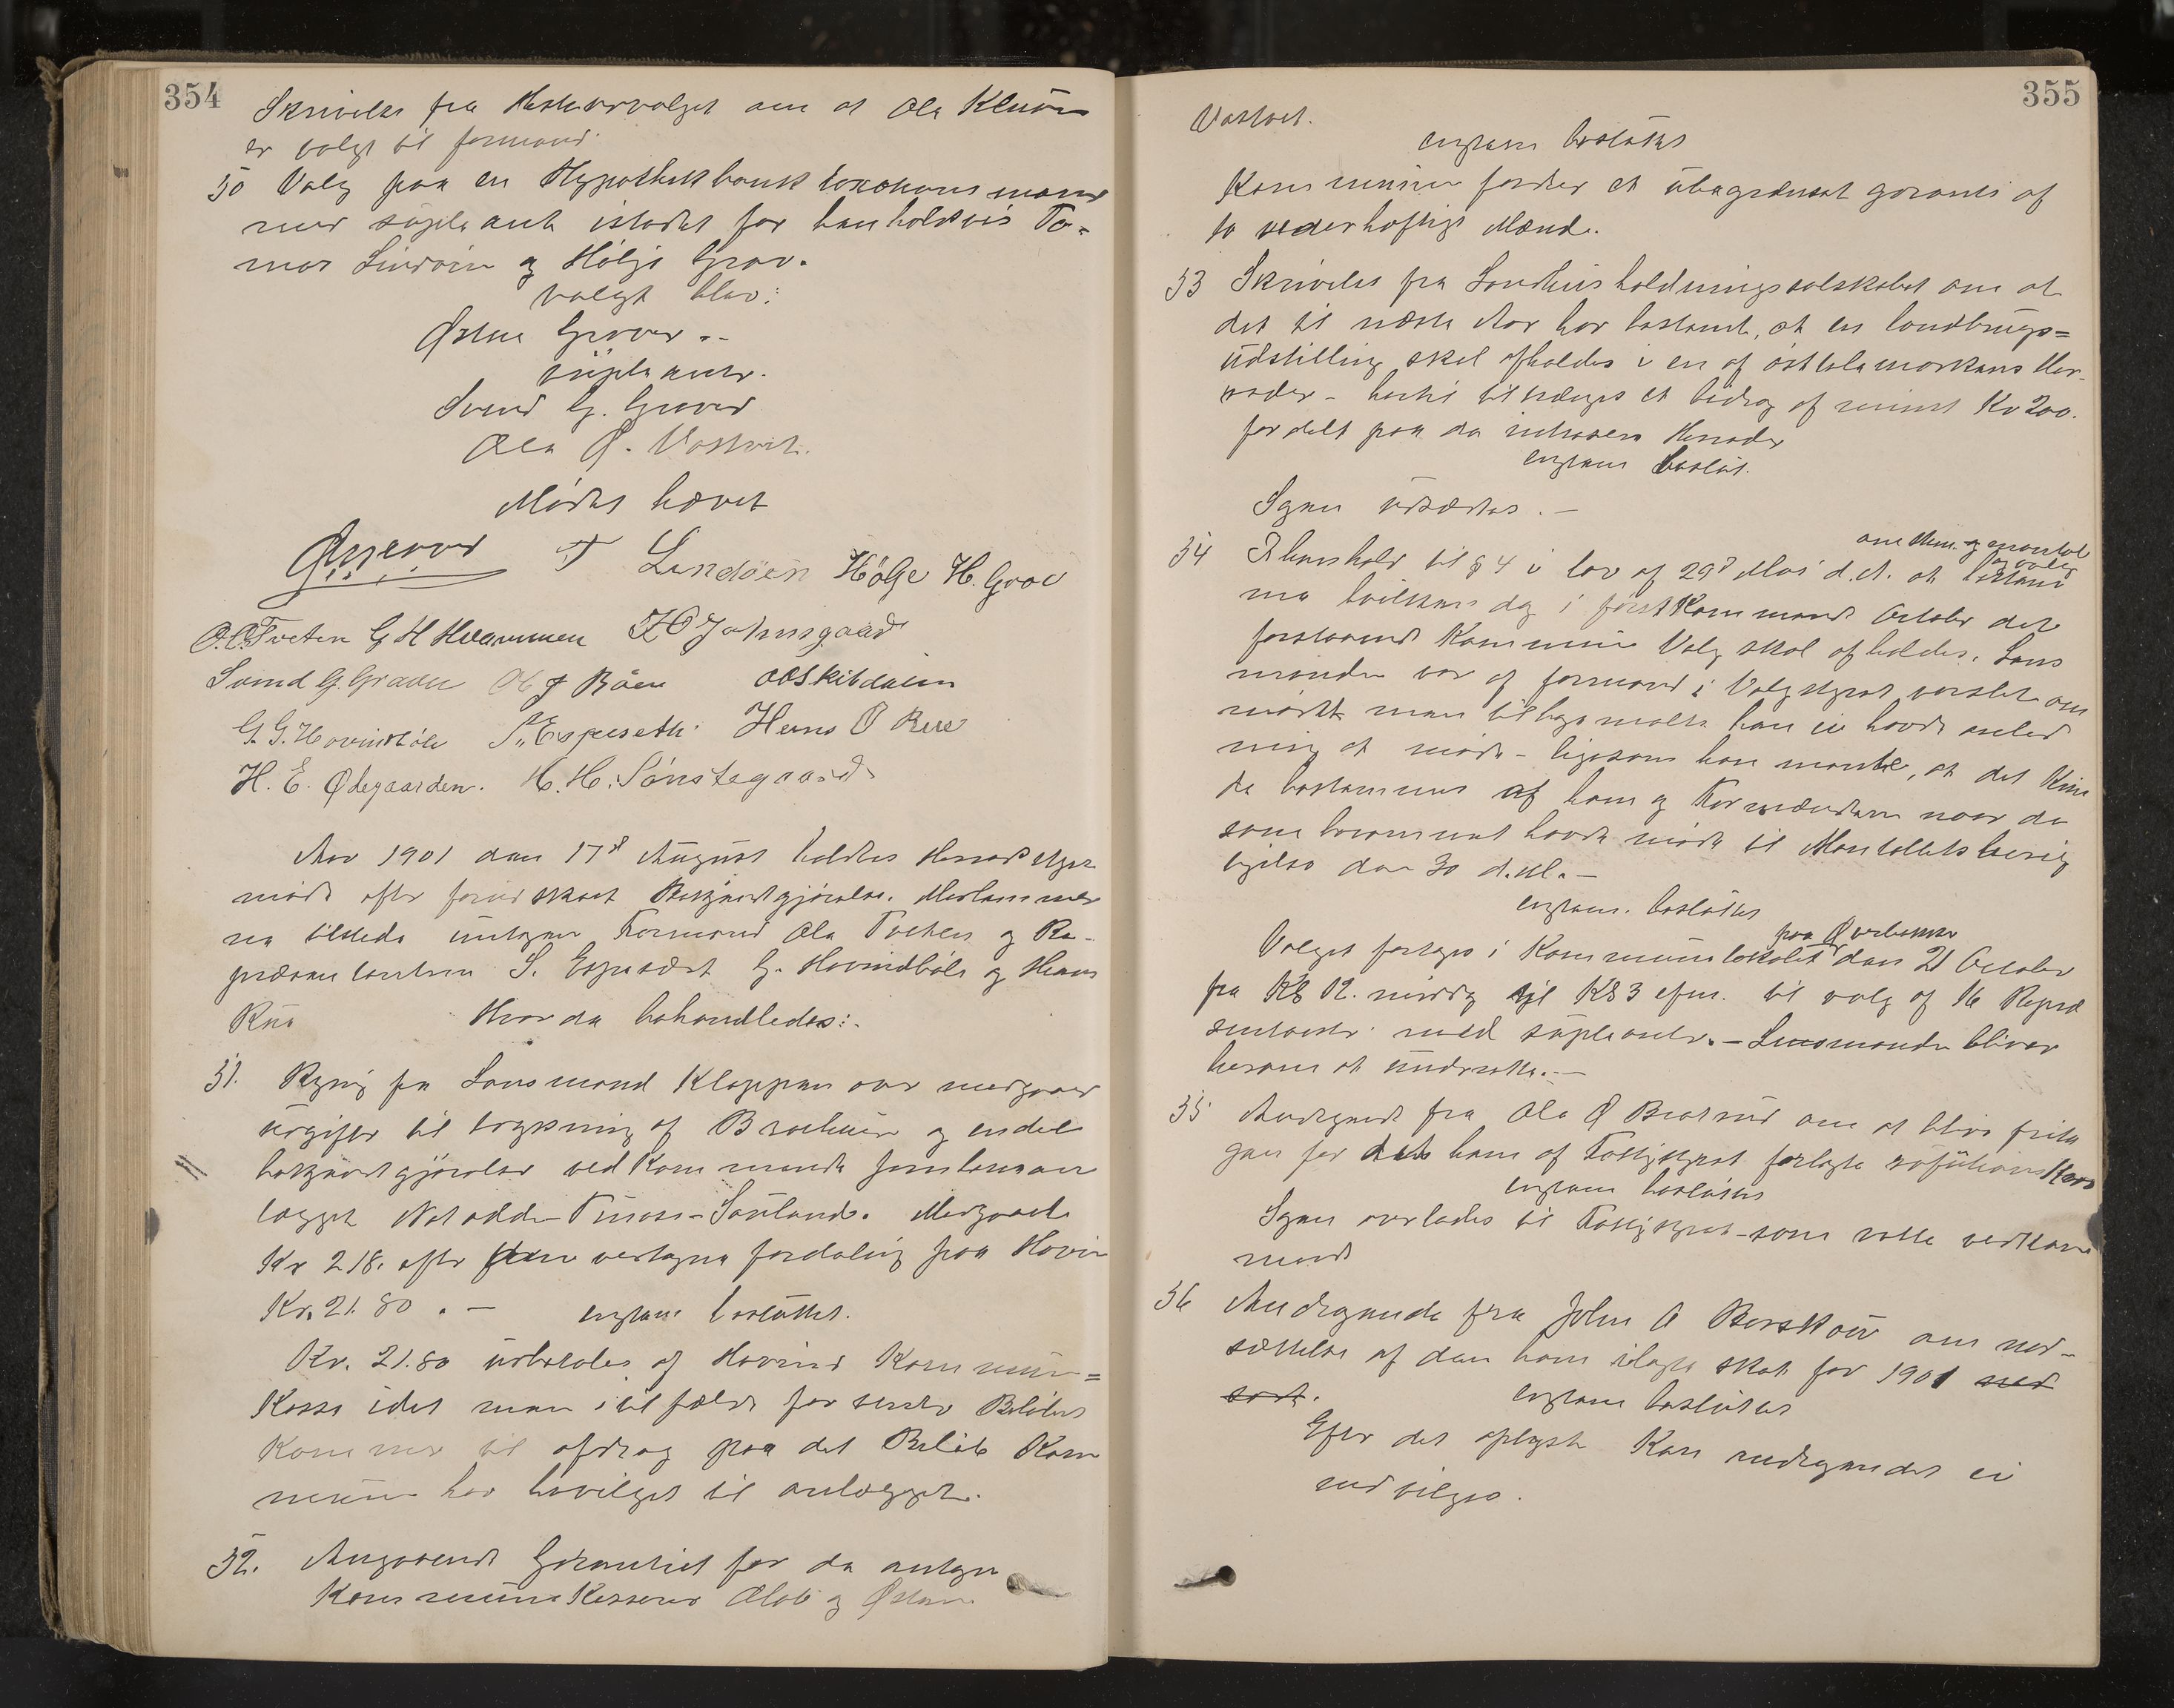 354
Skrivelse fra Hesteudvalget om at Ola
er valgt til formand
50 Valg paa en Hypothekbank taxations mand
med supleant istedet for henholdsvis To-
mas Lindøen og Hölje Grov.
valgt blev:
Østen Grover.-
supleanter.
Svend G. Grover
Ola Ø. Vostveit.
Mödet hævet
T Lindöen Hölje H. Grov
O.O. Tveten G H Hvammen H Johnsgaard
Svend G. Graver Ole J Böen OO Skibdalen
G. G. Hovindböle S. Espeseth. Hans O Rue
H. E. Ødegaarden. H. H. Sönstegaard
Aar 1901 den 17d August holdtes Herredstyre
möde efter forudskaet Bekjendtgjörelse. Medlemmer
ne tilstede undtagen Formand Ola Tveten og Re-
præsentanterne S. Espeseth G. Hovindböle og Hans
Rue Hvor da behandledes:-
51. Regning fra Lensmand Kloppen over medgaaed
udgifter til trykning af Brochurer og endel
bekjendtgjörelser vedkommende Jernbanean
lægget Notodden-Tinoset-Sauland. Medgaaede
Kr 218. efter den vedtagne fordeling paa Hovin
Kr. 21.80 .— enstem besluttet.
Kr. 21.80 udbetales af Hovind Kommune=
Kasse idet man i tilfælde forudsætter Belöbet
kommer til afdrag paa det Belöb Kom
munen har bevilget til anlægget.
52. Angaaende Garantiet for de antagne
Kommune Kasserer Olav og Østen
355
Vostveit.
enstem besluttes
Kommunen fordrer et ubegrænset garanti af
to vederhæftige Mænd.
53 Skrivelse fra Landhusholdningsselskabet om at
det til næste Aar har bestemt, at en landbrugs=
udstilling skal afholdes i en af östtelemarkens Her-
reder - hertil tilsiges et bidrag af mindst Kr 200.
fordelt paa de interesse Herreder
enstem beslut.
Sagen udsættes.-
54 I henhold til § 4 i lov af 29d Mai d.A. om Kom. og mantal og valg at bestem
me hvilken dag i förstkommende October det
forstaaende Kommune Valg skal afholdes. Lens
manden var af formand i Valgstyret varslet om
mödet man tilbagemeldte han ei havde anled
ning at möde - ligesom han mente, at det kun
de bestemmes af ham og Formændene naar de
som bekjent havde möde til Mantallets berig
tigelse den 30 d.M.-
enstem. besluttes
Valget foretages i Kommunelokalet paa Ørbekken den 21 October
fra Kl 12. middag til Kl 3 efm. til valg af 16 Repræ
sentanter med supleanter.- Lensmanden bliver
herom at underrette.-
55 Andragende fra Ola Ø Bratrud om at blive frita
gen for det ham af Fattigstyret forlagte refutions Krav
enstem besluttes
Sagen overlades til Fattigstyret - som rette vedkom
mende
56 Andragende fra John A Berskou om ned-
sættelse af den ham ilagte skat for 1901 ned
sæt.
enstem besluttes
Efter det oplyste kan andragendet ei
indvilges.